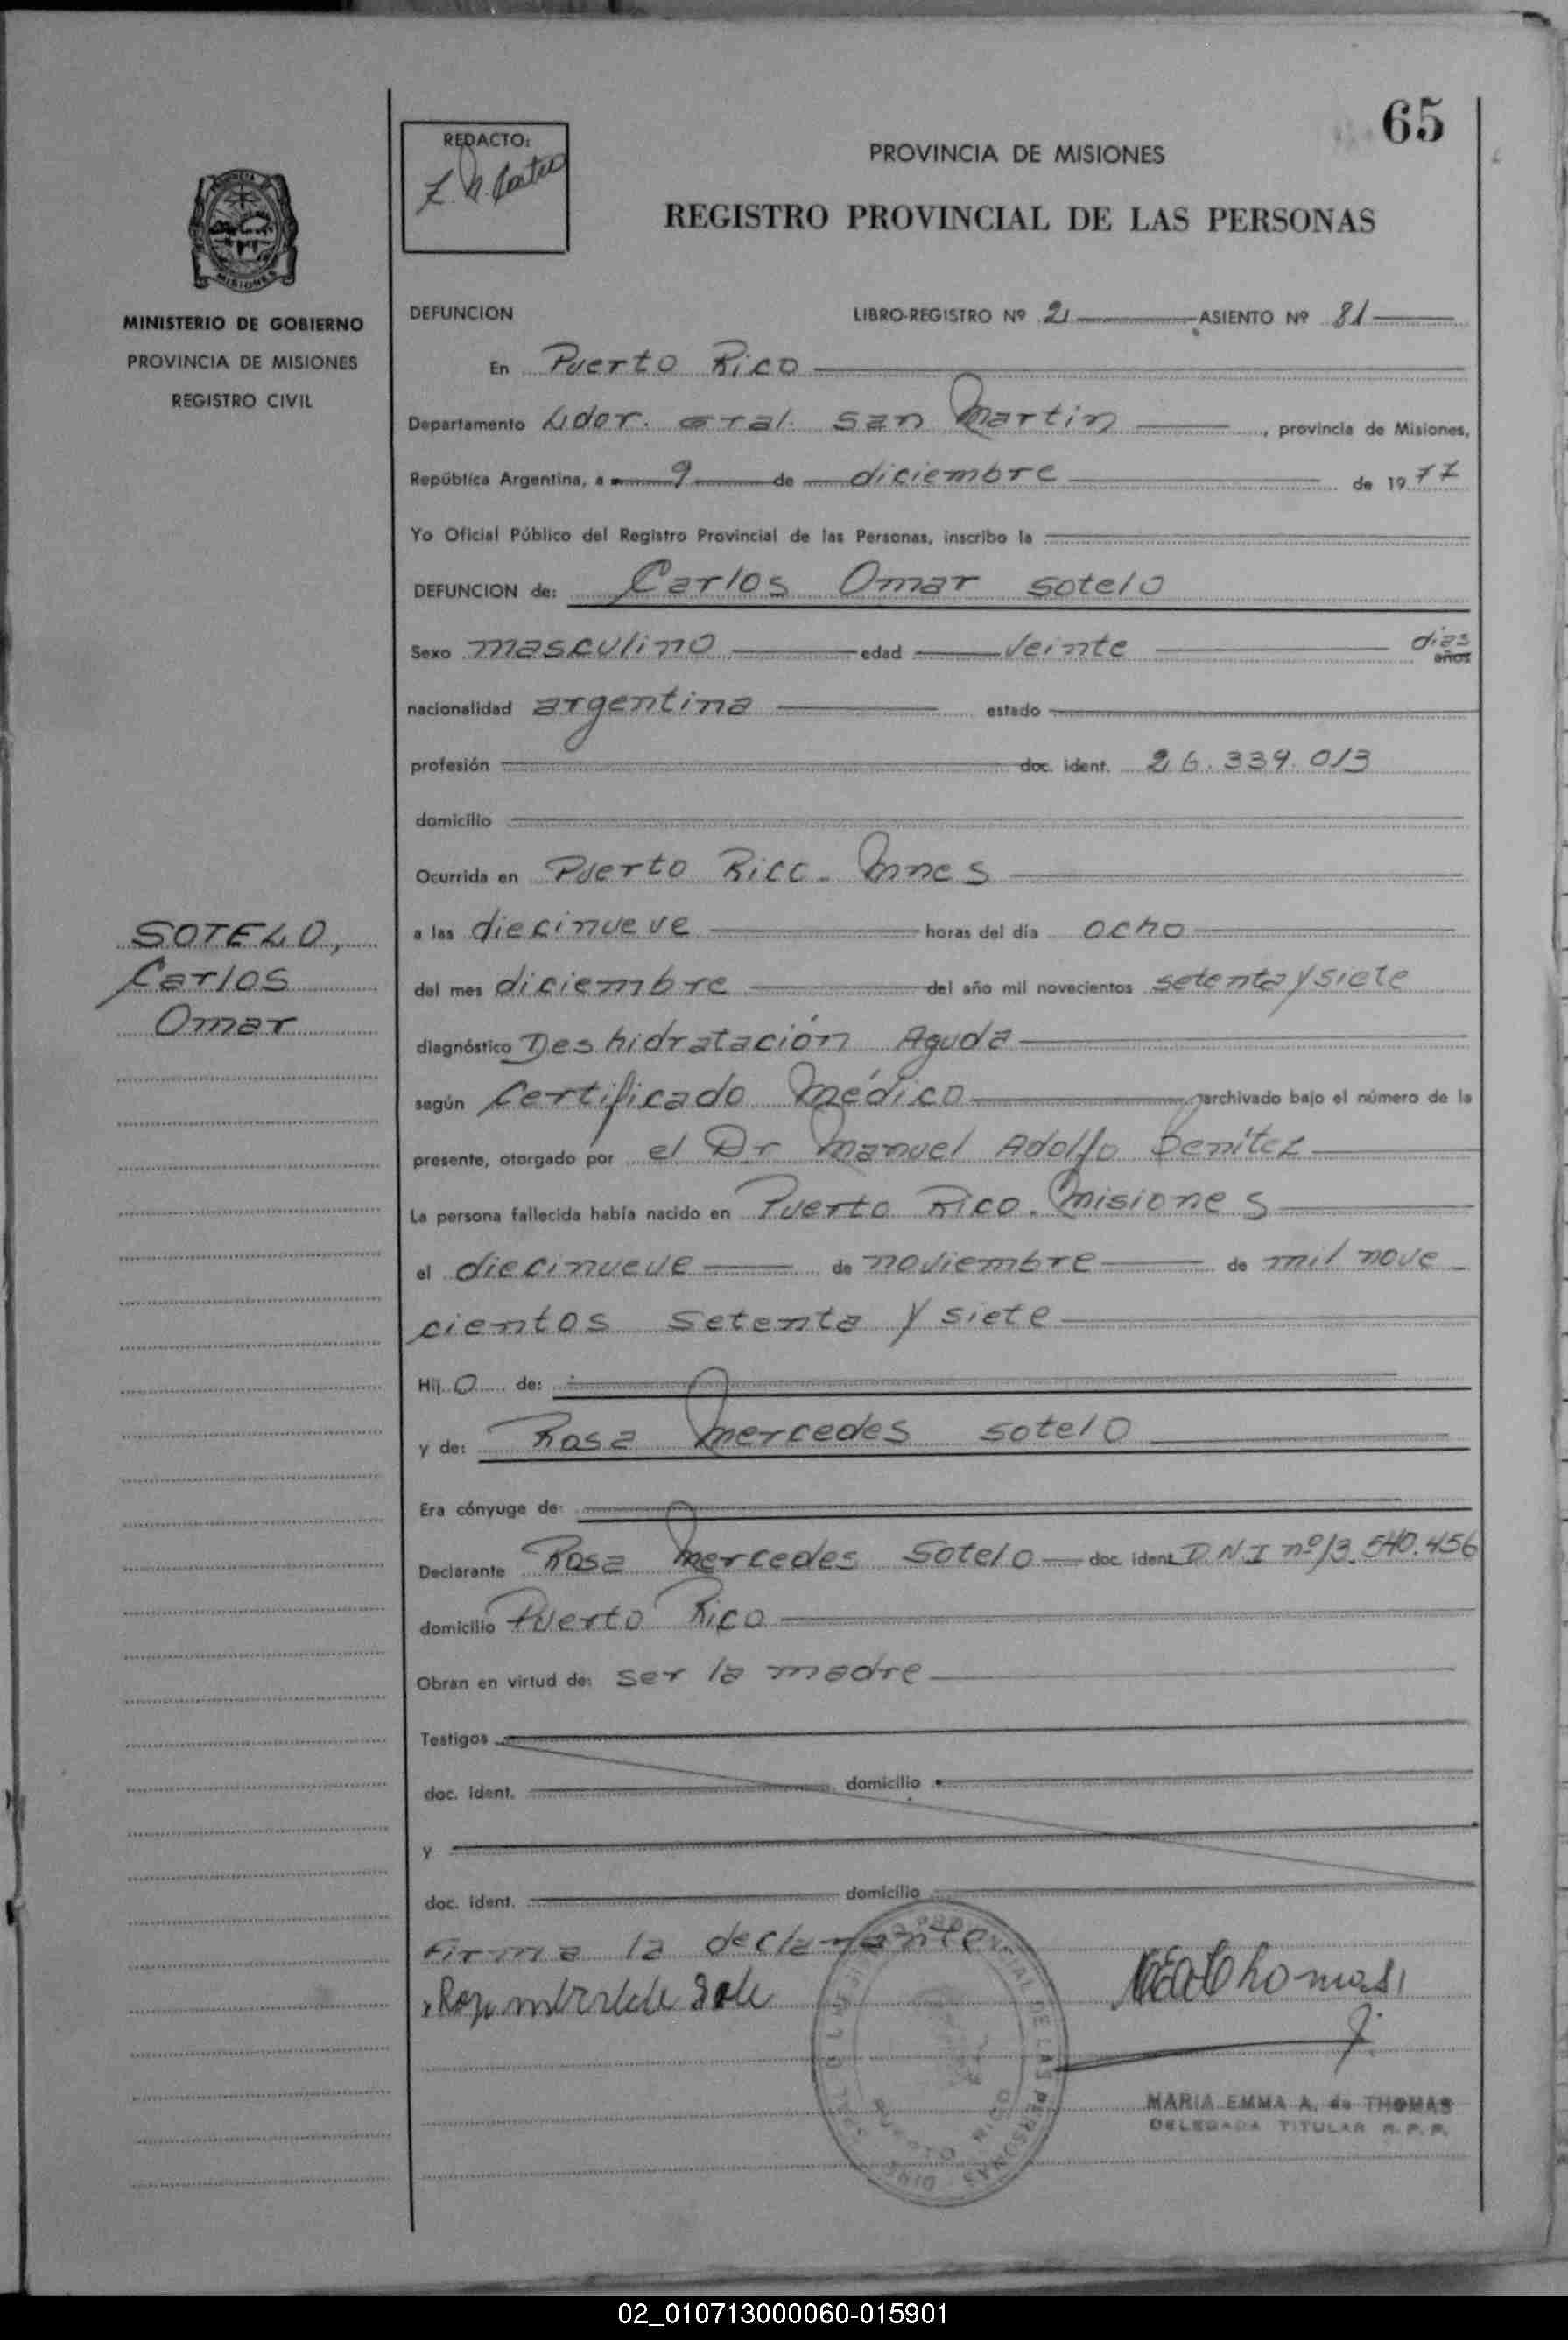 65
REDACTO:
PROVINCIA DE MISIONES
REGISTRO PROVINCIAL DE LAS PERSONAS
MISIONES
MINISTERIO DE GOBIERNO
PROVINCIA DE MISIONES
REGISTRO CIVIL
DEFUNCION LIBRO-REGISTRO Nº 21 ASIENTO Nº 81
En Puerto Rico
Departamento Ldor. Gral. San Martin, provincia de Misiones,
República Argentina, a 9 de diciembre de 19 77
Yo Oficial Público del Registro Provincial de las Personas, inscribo la
DEFUNCION de: Carlos Omar Sotelo
Sexo masculino edad veinte dias años
nacionalidad argentina estado
profesión doc. ident. 26.339.013
domicilio
Ocurrida en Puerto Rico. Mnes
SOTELO,
Carlos
Omar
a las diecinueve horas del día ocho
del mes diciembre del año mil novecientos setenta y siete
diagnóstico Deshidratación Aguda
según Certificado Médico archivado bajo el número de la
presente, otorgado por el Dr Manuel Adolfo Benítez
La persona fallecida había nacido en Puerto Rico. Misiones
el diecinueve de noviembre de mil nove
cientos setenta y siete
Hij o de:
y de: Rosa Mercedes Sotelo
Era cónyuge de:
Declarante Rosa Mercedes Sotelo doc. ident. D.N.I nº 13.540.456
domicilio Puerto Rico
Obran en virtud de: ser la madre
Testigos
doc. ident. domicilio
y
doc. ident. domicilio
Firma la declarante
MARIA EMMA A. de THOMAS
DELEGADA TITULAR R.P.P.
02_010713000060-015901